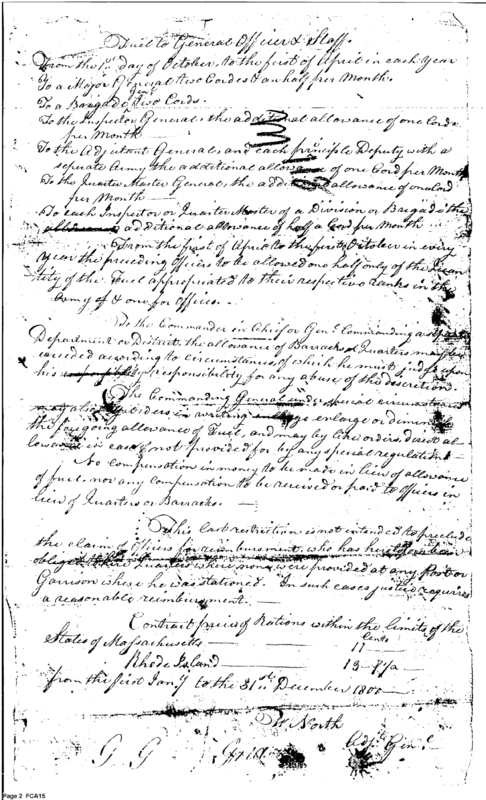 Fuel to General Officer & Staff.
From the 1st day of October to the first of April in each year
To a Major General two Cordes & an half per Month.
To a Brigad.r Gen.l two Cords.
To the Inspector General the additional allowance of one Corde
per Month
To the Adjutant General, and each principle Deputy with a
seperate Army the additional allowance of one Cord per Month
To the Quarter Master General, the additional allowance of one Cord
per Month
To each Inspector or Quarter Master of a Division or Brigade the
additional allowance of half a Cord per Month
From the first of April to the first October in every
year the preceding officers to be allowed one half only of the Quan
tity of the Fuel appropriated to their respective Ranks in the
Army of & one for Offices.
To the Commander in Chief or Gen.l Commanding a
Department or District, the allowance of Barracks or Quarters may be
exceeded according to circumstances of which he must judge upon
his responsibility for any abuse of the discretion.
The Commanding General under special circumstances
may also enlarge or diminish
the foregoing allowance of Fuel, and may by like orders direct al
lowance in cases not provided for by any special regulation
No compensation in money to be made in lieu of allowance
of fuel, nor any compensation to be received or paid to officers in
lieu of Quarters or Barracks.
This last restriction is not intended to preclude
the claim of Officers for reimbursement who has heretofore been
obliged Quarters where none were provided at any Post or
Garrison where he was stationed. In such cases justice requires
a reasonable reimbursement
Contract prices of Rations within the limits of the
Cents
States of Massachusetts 17
Rhode Island 13
from the first Jan.y to the 31st December 1800
W North
Adj.t Gen.l
G G
Page 2 FCA15